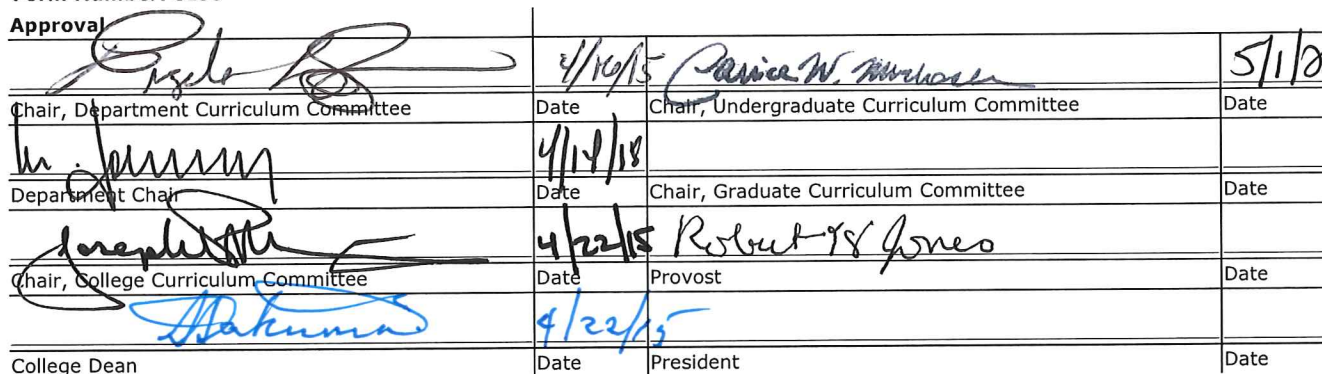 Approval
4/16/15 5/1/2
Chair, Department Curriculum Committee Date Chair, Undergraduate Curriculum Committee Date
Department Chair Date Chair, Graduate Curriculum Committee Date
Joseph 4/22/15 Robert Jones
Chair, College Curriculum Committee Date Provost Date
4/22/15
College Dean Date President Date